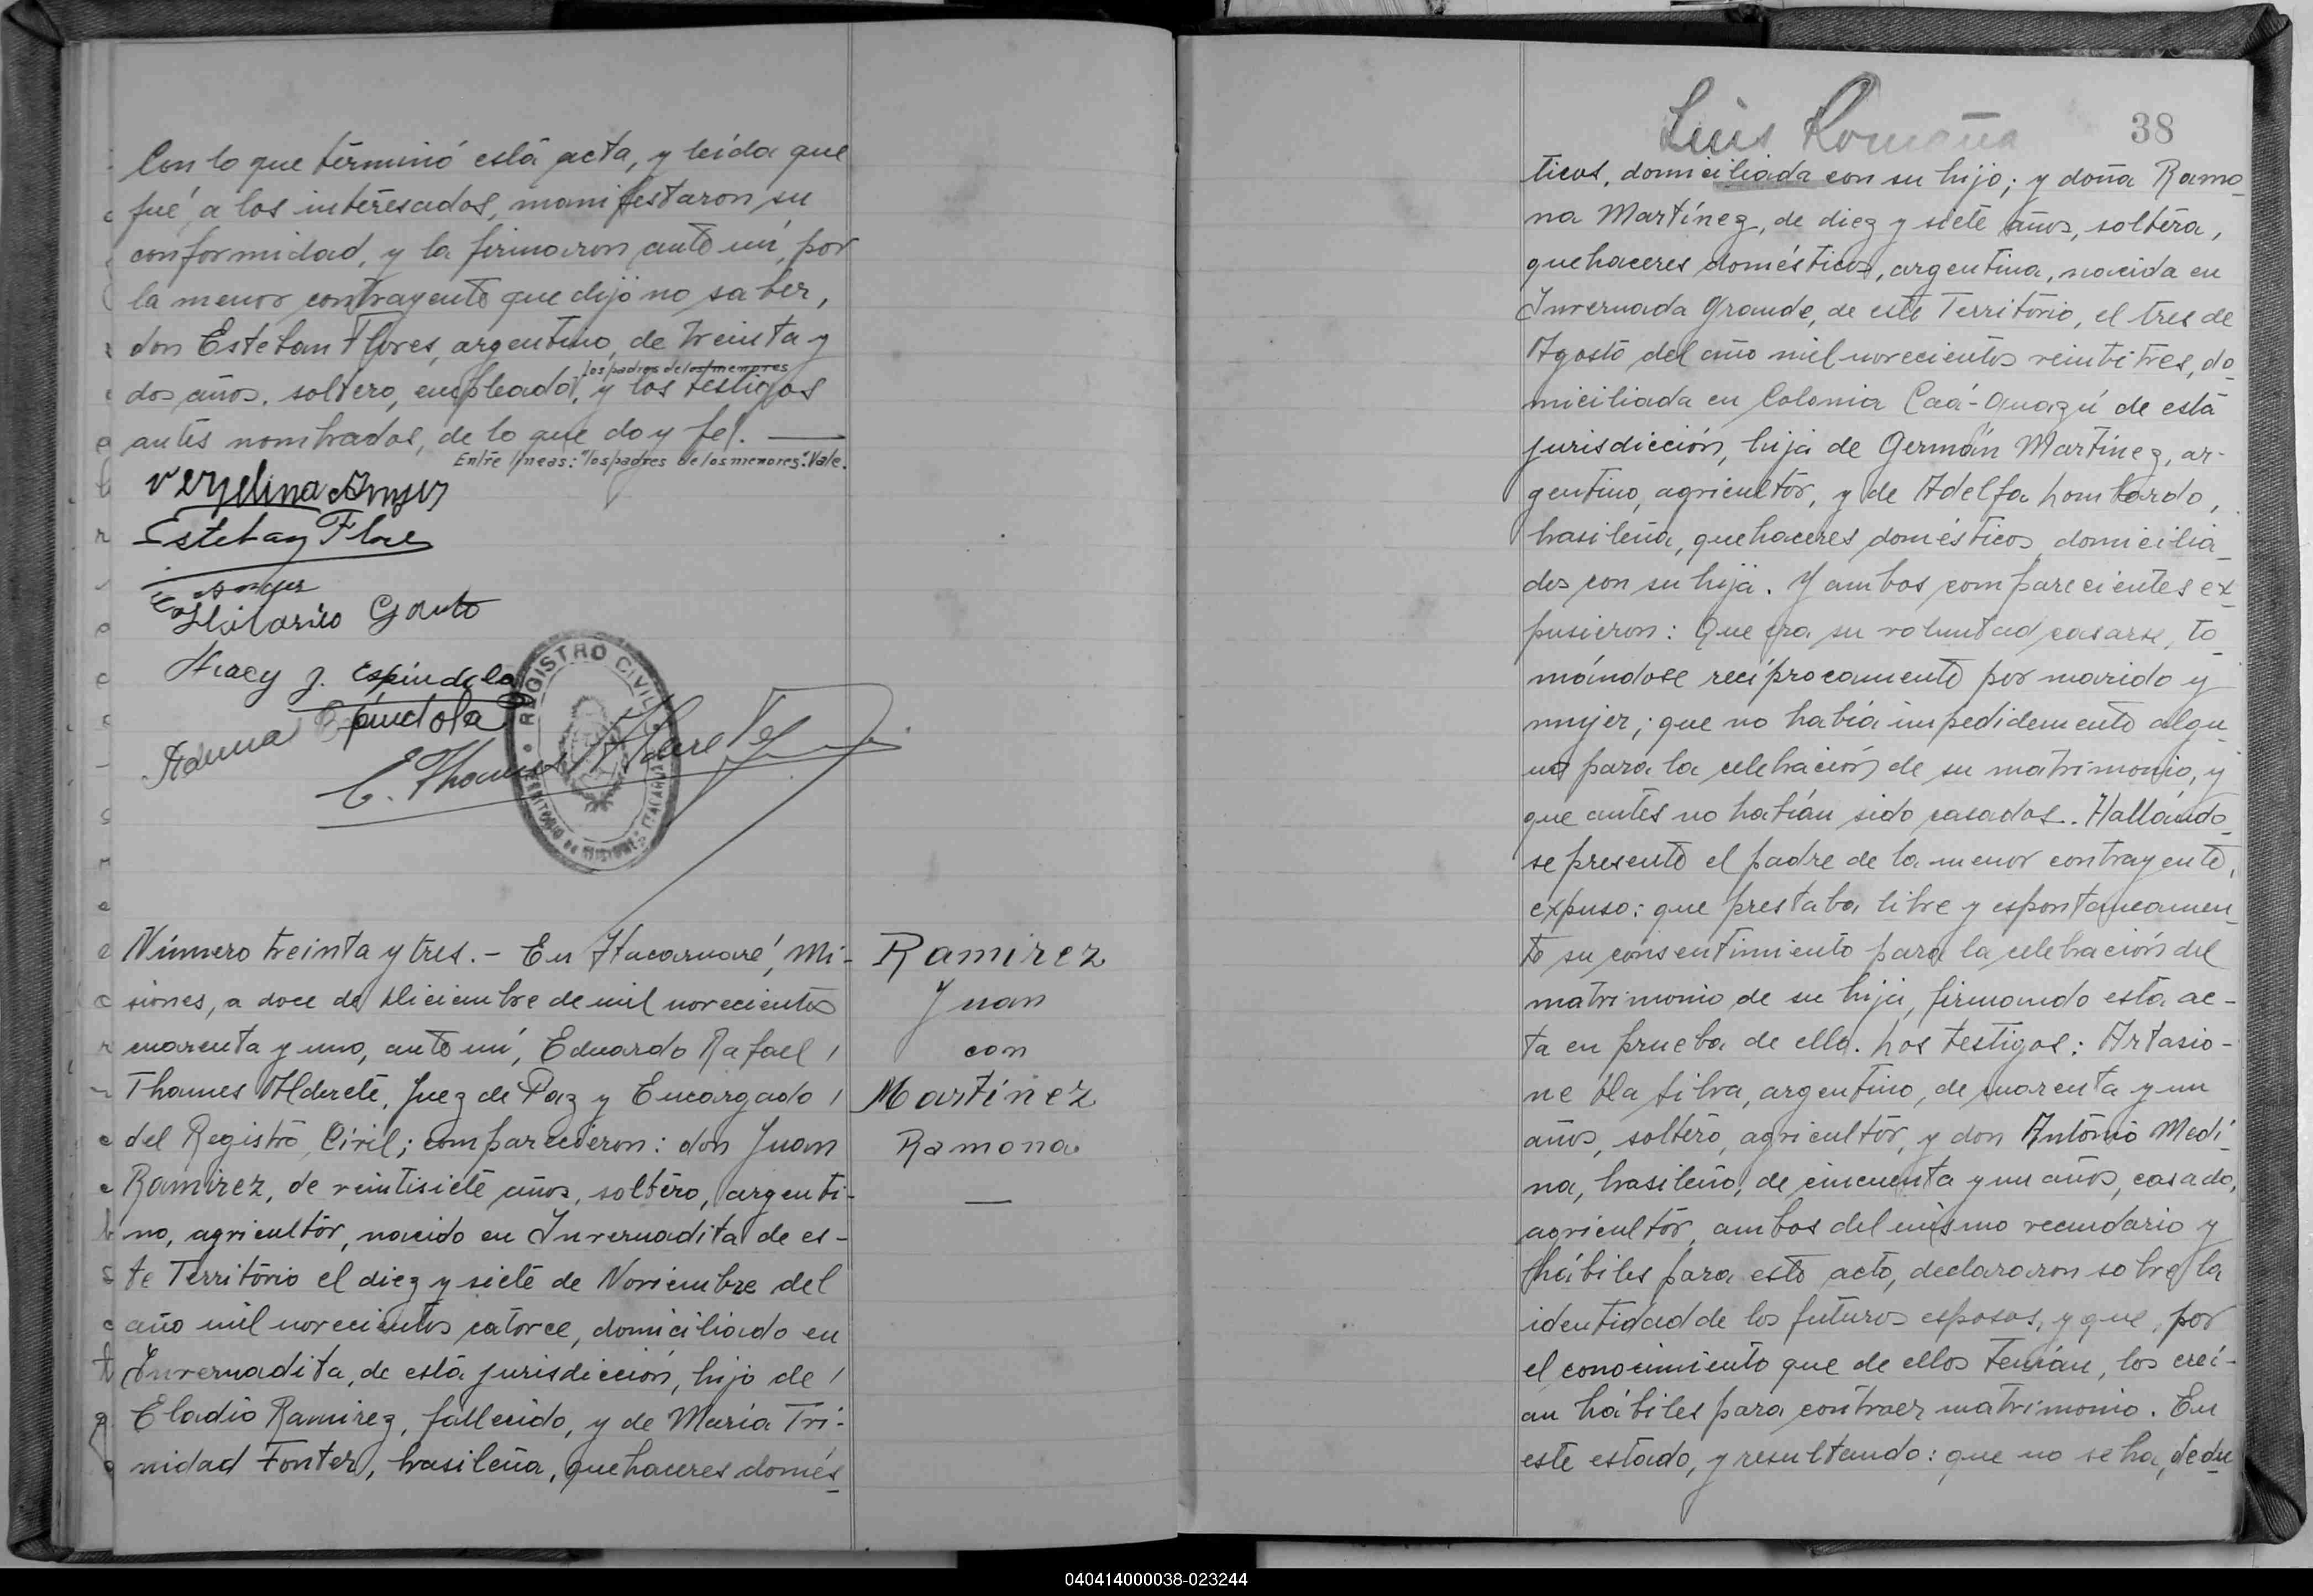 Con lo que términó está acta, y leída que
fué a los interesados, manifestaron su
conformidad, y la firmaron ante mí, por
la menor contrayente que dijo no saber,
don Esteban Flores, argentino, de treinta y
los padres de los menores
dos años, soltero, empleado, y los testigos
antes nombrados, de lo que doy fe.
Entre líneas: "los padres de los menores". Vale.
Esteban Flores
Hilario Gauto
J. Espindola
Espíndola
E. Thames Alderete
REGISTRO CIVIL
TERRITORIO DE MISIONES ITACARUARE
Número treinta y tres. - En Itacaruaré, Mi-
siones, a doce de Diciembre de mil novecientos
cuarenta y uno, ante mí, Eduardo Rafael
Thames Alderete, Juez de Paz y Encargado
del Registro Civil; comparecieron: don Juan
Ramirez, de veintisiete años, soltero, argenti-
no, agricultor, nacido en Invernadita de es-
te Territorio el diez y siete de Noviembre del
año mil novecientos catorce, domiciliado en
Invernadita, de está jurisdicción, hijo de
Eladio Ramirez, fallecido, y de María Tri-
nidad Fonter, brasileña, quehaceres domés
Ramirez
Juan
con
Martínez
Ramona
Luis Romaña
38
ticos, domiciliada con su hijo; y doña Ramo
na Martínez, de diez y siete años, soltera,
quehaceres domésticos, argentina, nacida en
Invernada Grande, de este Territorio, el tres de
Agosto del año mil novecientos veintitres, do
miciliada en Colonia Caá-Guazú de está
jurisdicción, hija de Germán Martínez, ar-
gentino, agricultor, y de Adelfa Lombardo,
brasileña, quehaceres domésticos, domicilia
dos con su hija. Y ambos comparecientes ex
pusieron: Que era su voluntad casarse, to
mándose recíprocamente por marido y
mujer; que no había impedidemento algu
no para la celebración de su matrimonio, y
que antes no habían sido casados. Hallándo
se presente el padre de la menor contrayente,
expuso: que prestaba libre y espontaneamen
te su consentimiento para la celebración del
matrimonio de su hija, firmando esta ac-
ta en prueba de ello. Los testigos: Artasio-
ne Da Silva, argentino, de cuarenta y un
años, soltero, agricultor, y don Antonio Medi
na, brasileño, de cincuenta y un años, casado,
agricultor, ambos del mismo vecindario y
hábiles para este acto, declararon sobre la
identidad de los futuros esposos, y que, por
el conocimiento que de ellos tenían, los creí-
an hábiles para contraer matrimonio. En
este estado, y resultando: que no se ha dedu
040414000038-023244